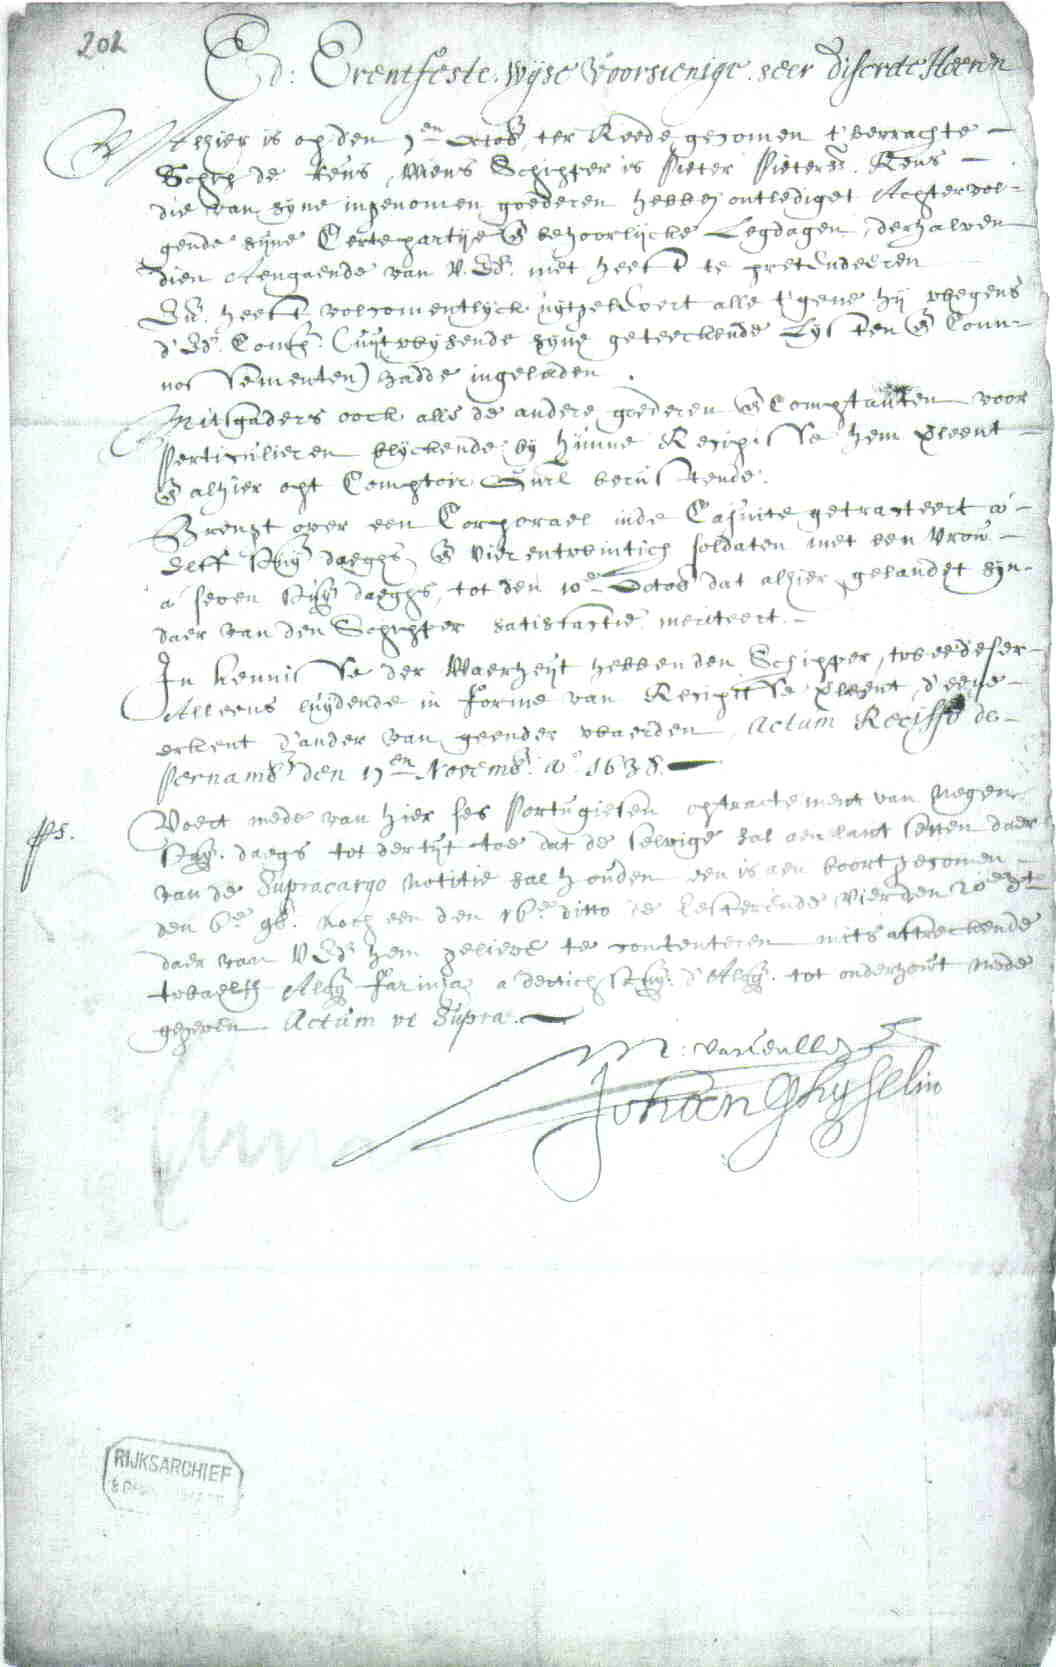 202
Ed: Erentfeste. Wyse Voorsienige. seer discrete Heeren
Alhier is op den 7en Octob ter Reede gecomen t' bevrachte
Schip de Reus, Wiens Schipper is Pieter Pietersz. Reus
die van syne ingenomen goederen hebben ontlediget Achtervol-
gende syne Certepartije & behoorlijcke Legdagen, derhalven
dien Aengaende van V. Ed. niet heeft te pretenderen
heeft volcomentlyck uytgelevert alle t' gene hij wegens
d' Ed. Comp. (uytwysende syne geteeckende Lysten & Conn-
nossementen) hadde ingeladen.
Mitsgaders oock alle de andere goederen & Comptanten voor
Perticulieren blyckende by hunne Recipisse hem verleent
& alhier opt Comptoir Gnrl berustende.
Brengt over een Corporael inde Cajuite getracteert a
elff stuy daeghs & vierentwintich soldaten met een vrow
a seven stuy daeghs, tot den 10e Octob dat alhier gelandet syn
daer van den Schipper satisfactie meriteert.
In kennisse der Waerheyt hebben den Schipper, twee deser
Alleens luydende in forme van Recipisse verleent, d'eene
erkent d'ander van geender waerden Actum Reciffo de
Pernamb den 17en Novemb. ao 1638.
PS.
Voert mede van hier ses Portugiesen op tractement van negen
stuy. daegs tot der tyt toe dat de selvige sal aen lant setten daer
van de Supracargo notitie sal houden een is aen boort gecomen
den 6e 9b. noch een den 16e ditto de resterende vier den 20e
daer van V Ed hem gelieve te contenteren mits aftreckende
twaelff Alq farinha a dertich stuy. d' Alq. tot onderhout mede
gegeven Actum ut Supra.
Johan Ghysselin
RIJKSARCHIEF